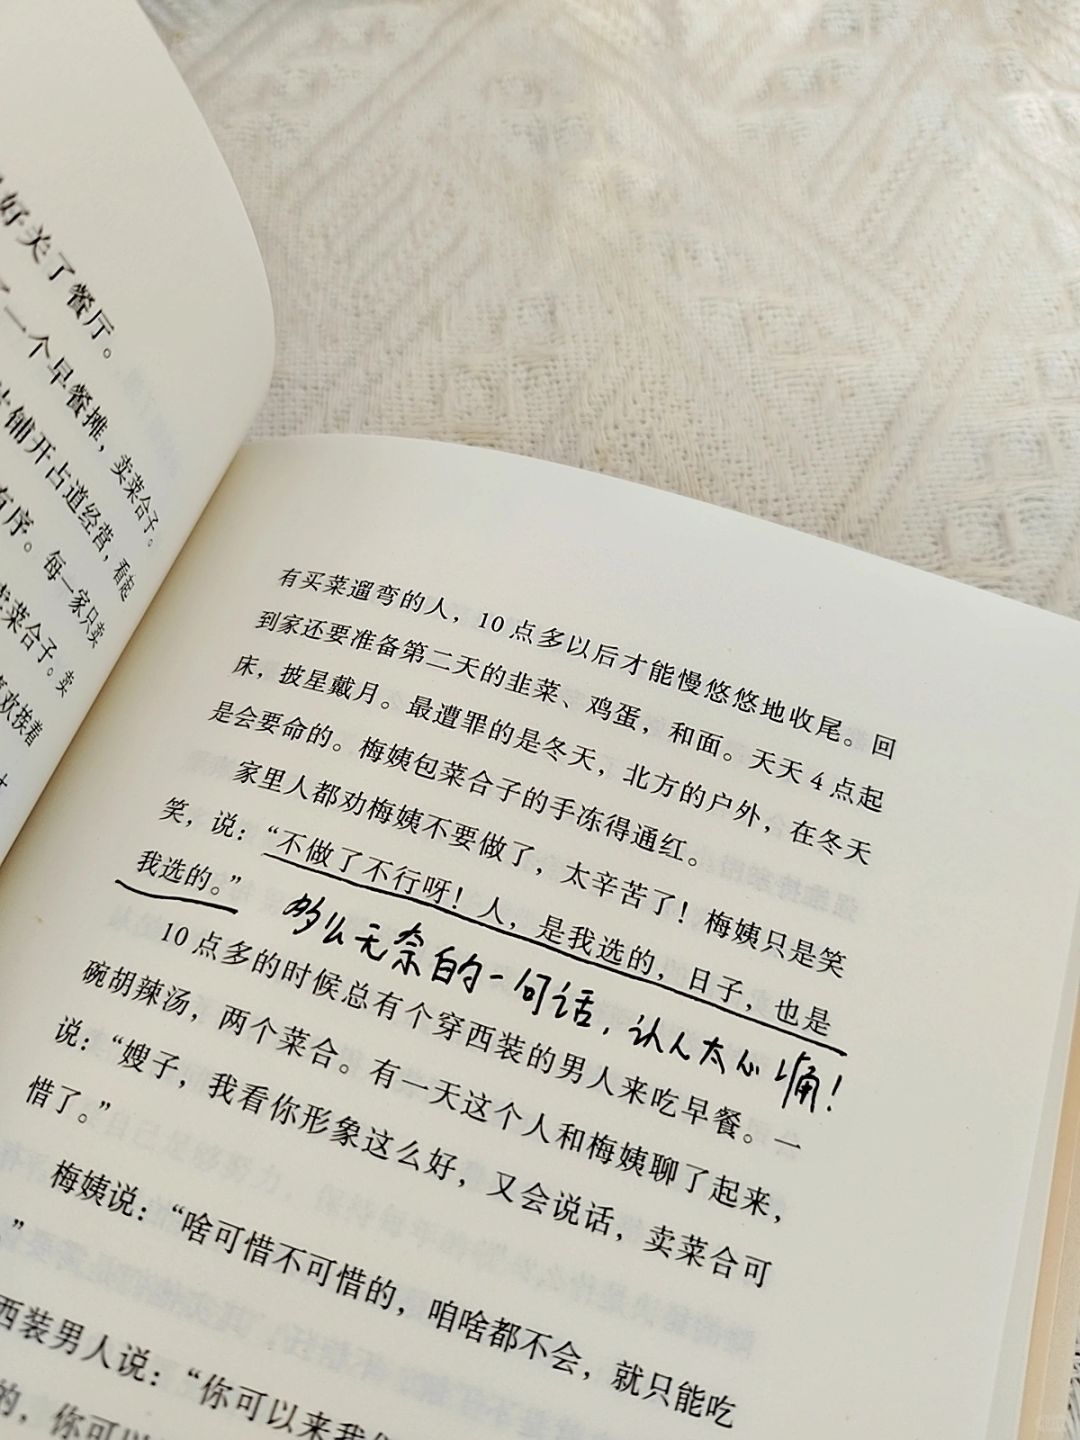 好关了餐厅。
了一个早餐摊，卖菜合子。
铺开占道经营，看起
有序。每一家只卖
卖菜合子。卖
欢挨着
有买菜遛弯的人，10点多以后才能慢悠悠地收尾。回
到家还要准备第二天的韭菜、鸡蛋，和面。天天4点起
床，披星戴月。最遭罪的是冬天，北方的户外，在冬天
是会要命的。梅姨包菜合子的手冻得通红。
家里人都劝梅姨不要做了，太辛苦了！梅姨只是笑
笑，说：“不做了不行呀！人，是我选的，日子，也是
我选的。”
多么无奈的一句话，让人太心痛！
10点多的时候总有个穿西装的男人来吃早餐。一
碗胡辣汤，两个菜合。有一天这个人和梅姨聊了起来，
说：“嫂子，我看你形象这么好，又会说话，卖菜合可
惜了。”
梅姨说：“啥可惜不可惜的，咱啥都不会，就只能吃
”
西装男人说：“你可以来我
的，你可以